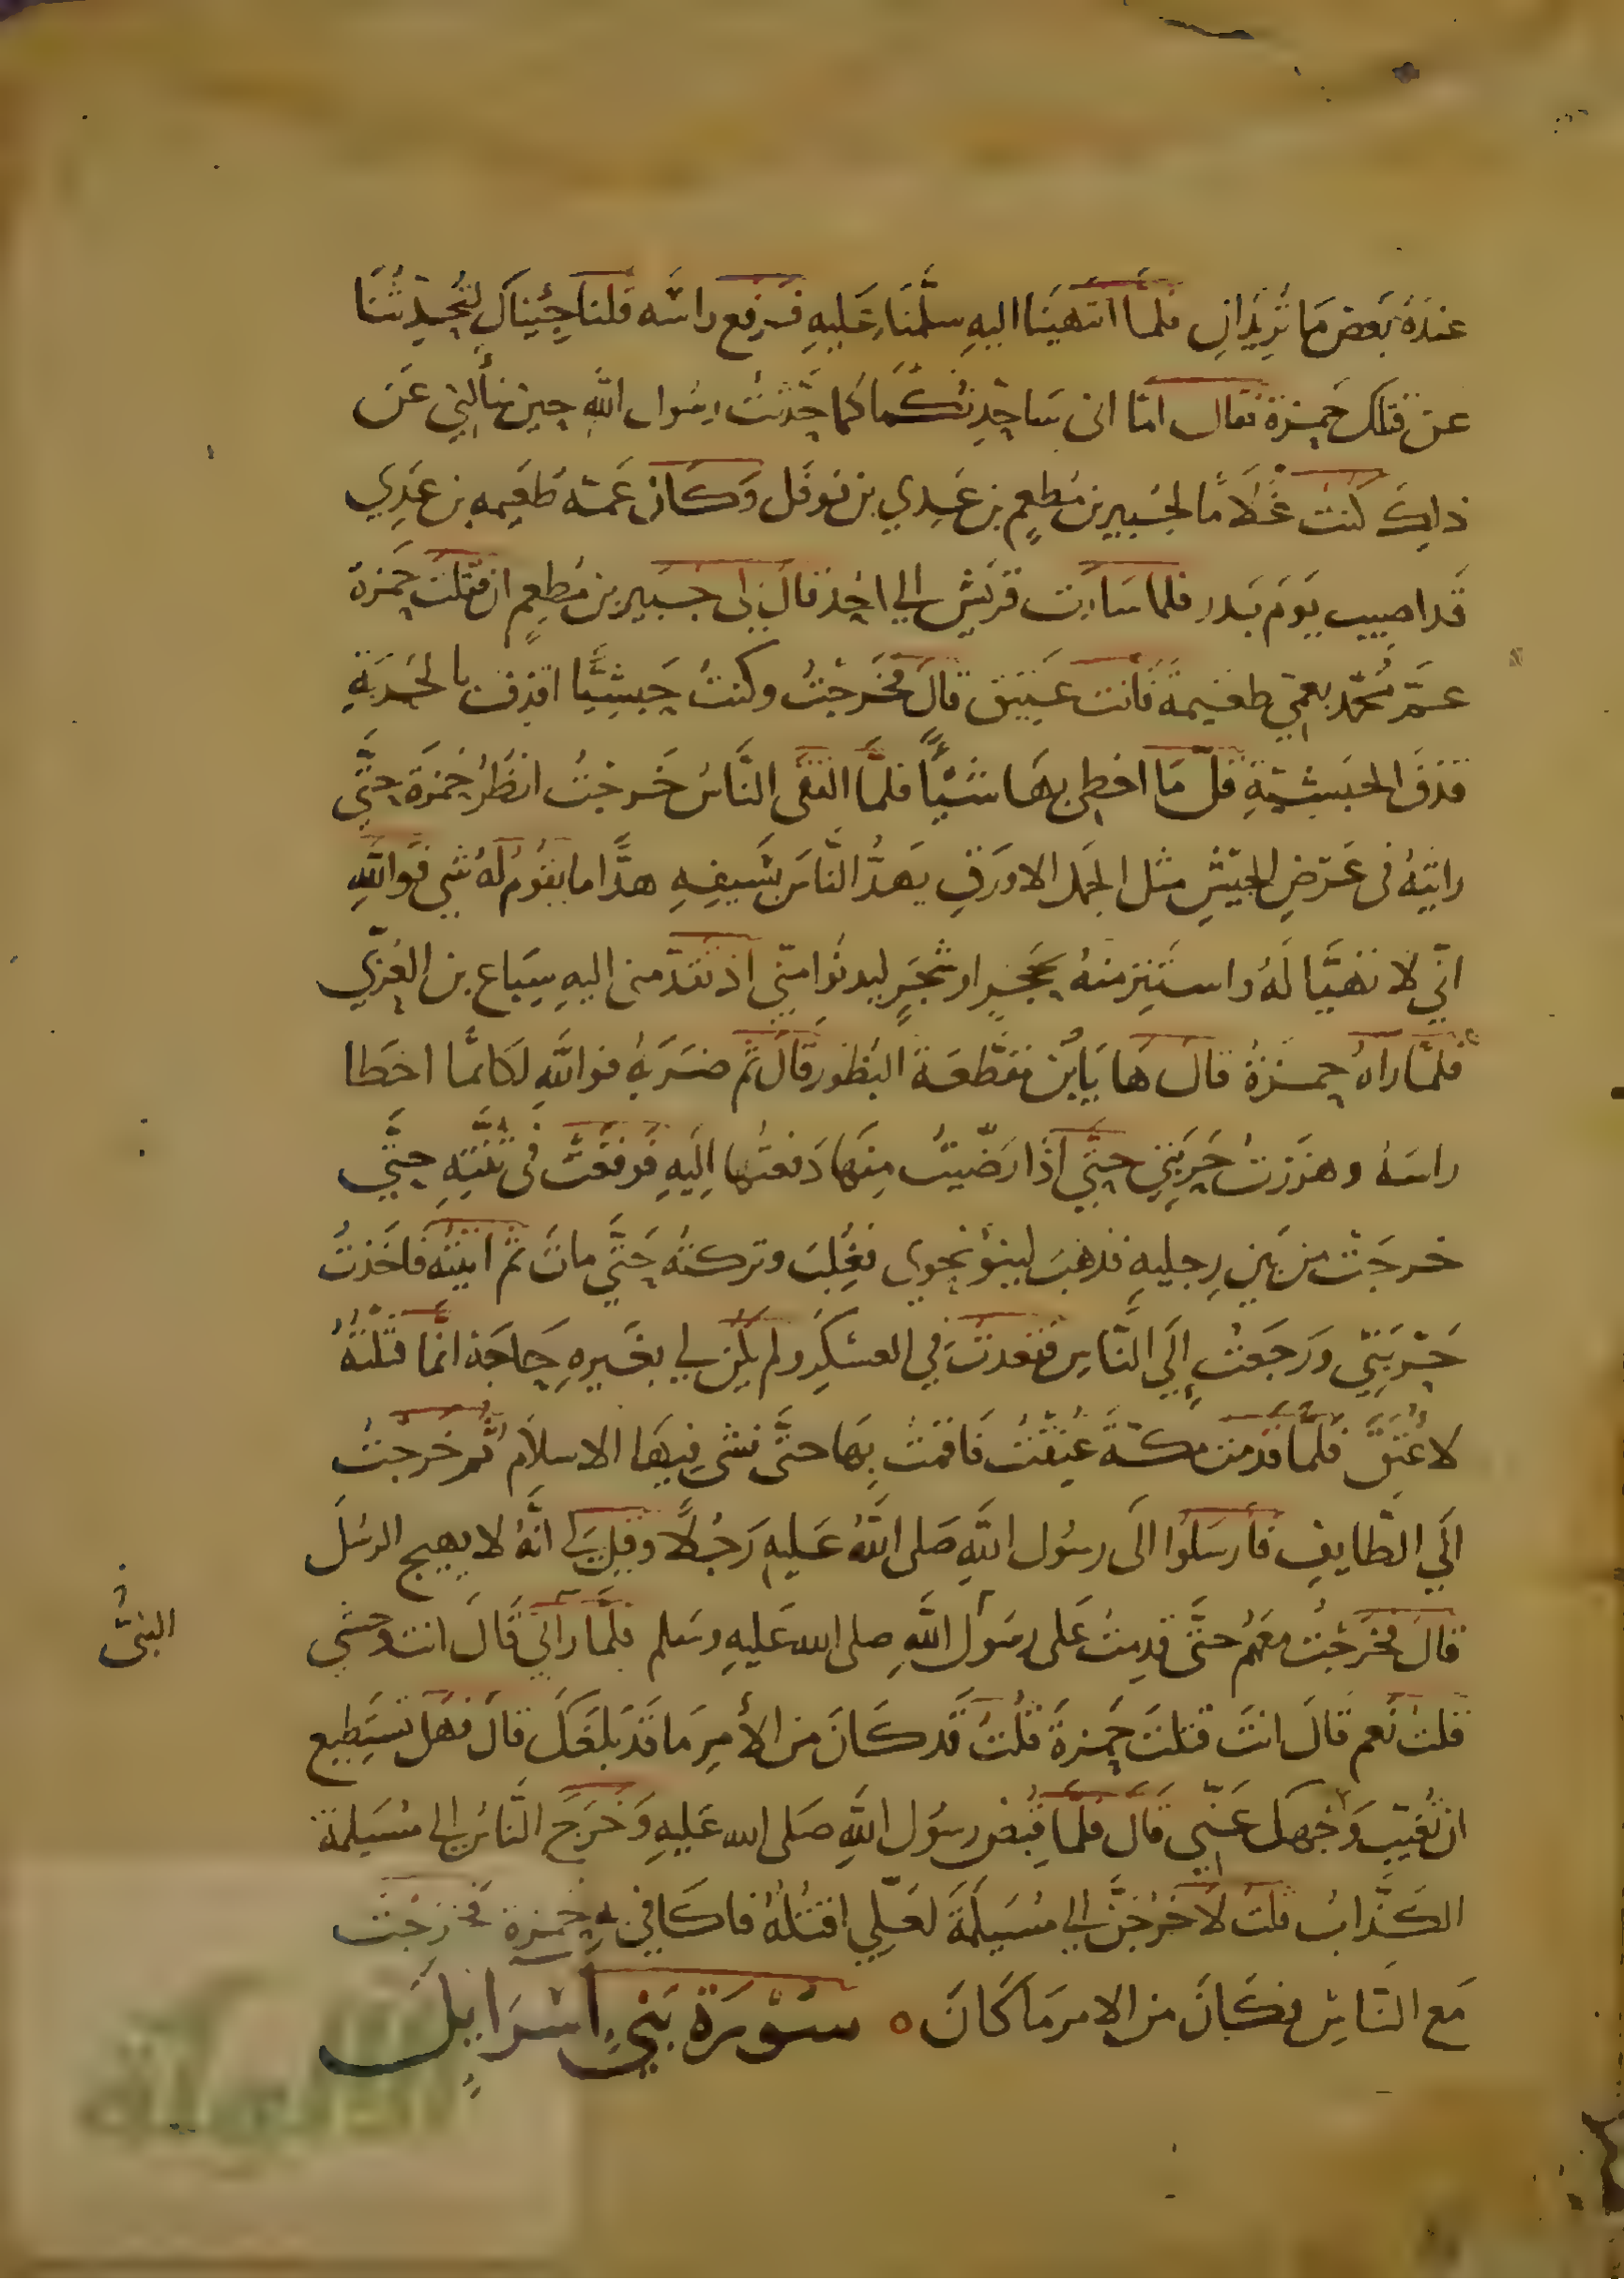 عندَهُ بَعض مَا تُرِيدَانِ فلمَّا انتهَينَا اليهِ سلَّمنَا عَليهِ فَرفع راسَه فلنا جِئينَاكَ لتُحَدِثنَا
عن قتلك حَمزة فقال امّا انى سَاحدِثكُمَا كما حَدثتُ رسُول اللهِ حين سَألنِي عَن
ذلِكَ كنتُ غُلامًا لجُبَير بن مُطعِمٍ بن عَدِي بن نَوفَل وَكانَ عَمّه طُعَيمه بن عَدِي
قَد اصِيب يَومَ بَدر فلما سَارت قُريَش الى احُد قالَ لى جبَير بن مُطعِمٍ ان قتلتَ حَمزة
عمَّ مُحمّد بعمِّي طعَيمة فَانت عَتِيق قالَ فخَرجتُ وكنتُ حَبشِيًّا اقذِف بالحَربَةِ
قذفَ الحبَشَيّةِ قلّ مَا اخطِي بهَا شَيًّا فلمَّا التقَى النَّاسُ خَرجتُ انظُر حَمزَة حتَّى
رايتهُ فى عَرضِ الجَيشِ مثل الجمَل الاورَقِ يَهدُّ النَّاسَ بسَيفِهِ هدًّا ما يقُومُ لهُ شي فوَاللهِ
انّي لا تهيَّا لَهُ واستَتِر منهُ بحَجرٍ او شجَرٍ ليدنُوا منّي اذ تقدّمنى اليهِ سِبَاع بن العُزّي
فلمَّا راهُ حمزةُ قالَ هَا يَا بْن مقطّعَة البُظور قال ثم ضرَبَهُ فواللهِ لَكانّما اخطَا
راسَهُ وهززتُ حَربَتِي حتَّى اذَا رَضّيتُ مِنهَا دَفعتُها اِلَيهِ فوقعَتْ فى ثُنَّتِهِ حتَّى
خرجَتْ من بَين رِجليهِ فذهَبَ لينؤ نحوى فغُلِبَ وتركتُهُ حَتَّى ماتَ ثم اتيتُهُ فاخَذتُ
حَربَتِي ورَجَعتُ إلَي النَّاس فقعدتُ في العسْكَر ولم يكن لي بغَيرهِ حَاجَة انمّا قتَلتُهُ
لاعْتَقَ فلمَّا قدمت مكةَ عُتِقتُ فَاقمتُ بِهَا حتَّى فشى فِيهَا الاسلاَم ثُم خرجتُ
الَى الطَّايِفِ فأرسَلوُا الَى رسُول اللهِ صَلى اللهُ عَليهِ رَجُلاً وقيلَ لي انَّهُ لا يهيج الرسُلَ
قالَ فخرَجتُ معَهُم حتَّى قدِمتُ عَلى رسُول اللهِ صلى الله عَليهِ وسَلم فلمَّا رآني قَالَ انت وحشي
النبىُّ
قلتُ نَعم قَالَ انتَ قتلتَ حَمزةَ قُلتُ قَد كَانَ من الأمرِ مَا قَد بَلغَكَ قالَ فهَل تستَطِيع
ان تُغيّبَ وَجْهكَ عَنِّي قَالَ فلمّا قُبِضَ رسُول اللهِ صَلى الله عَليهِ وَخرَجَ النَّاسُ الى مُسَيلمة
الكَذَّابُ قلتُ لاَخرُجنَّ الى مُسَيلمَةَ لعَلِّي اقتُلهُ فاكَافِىَ بهِ حَمزة فخرَجتُ
مَع النَّاسِ فكَانَ من الامر مَا كَانَ ه سُوْرَة بَنِي اسْرَايِلَ